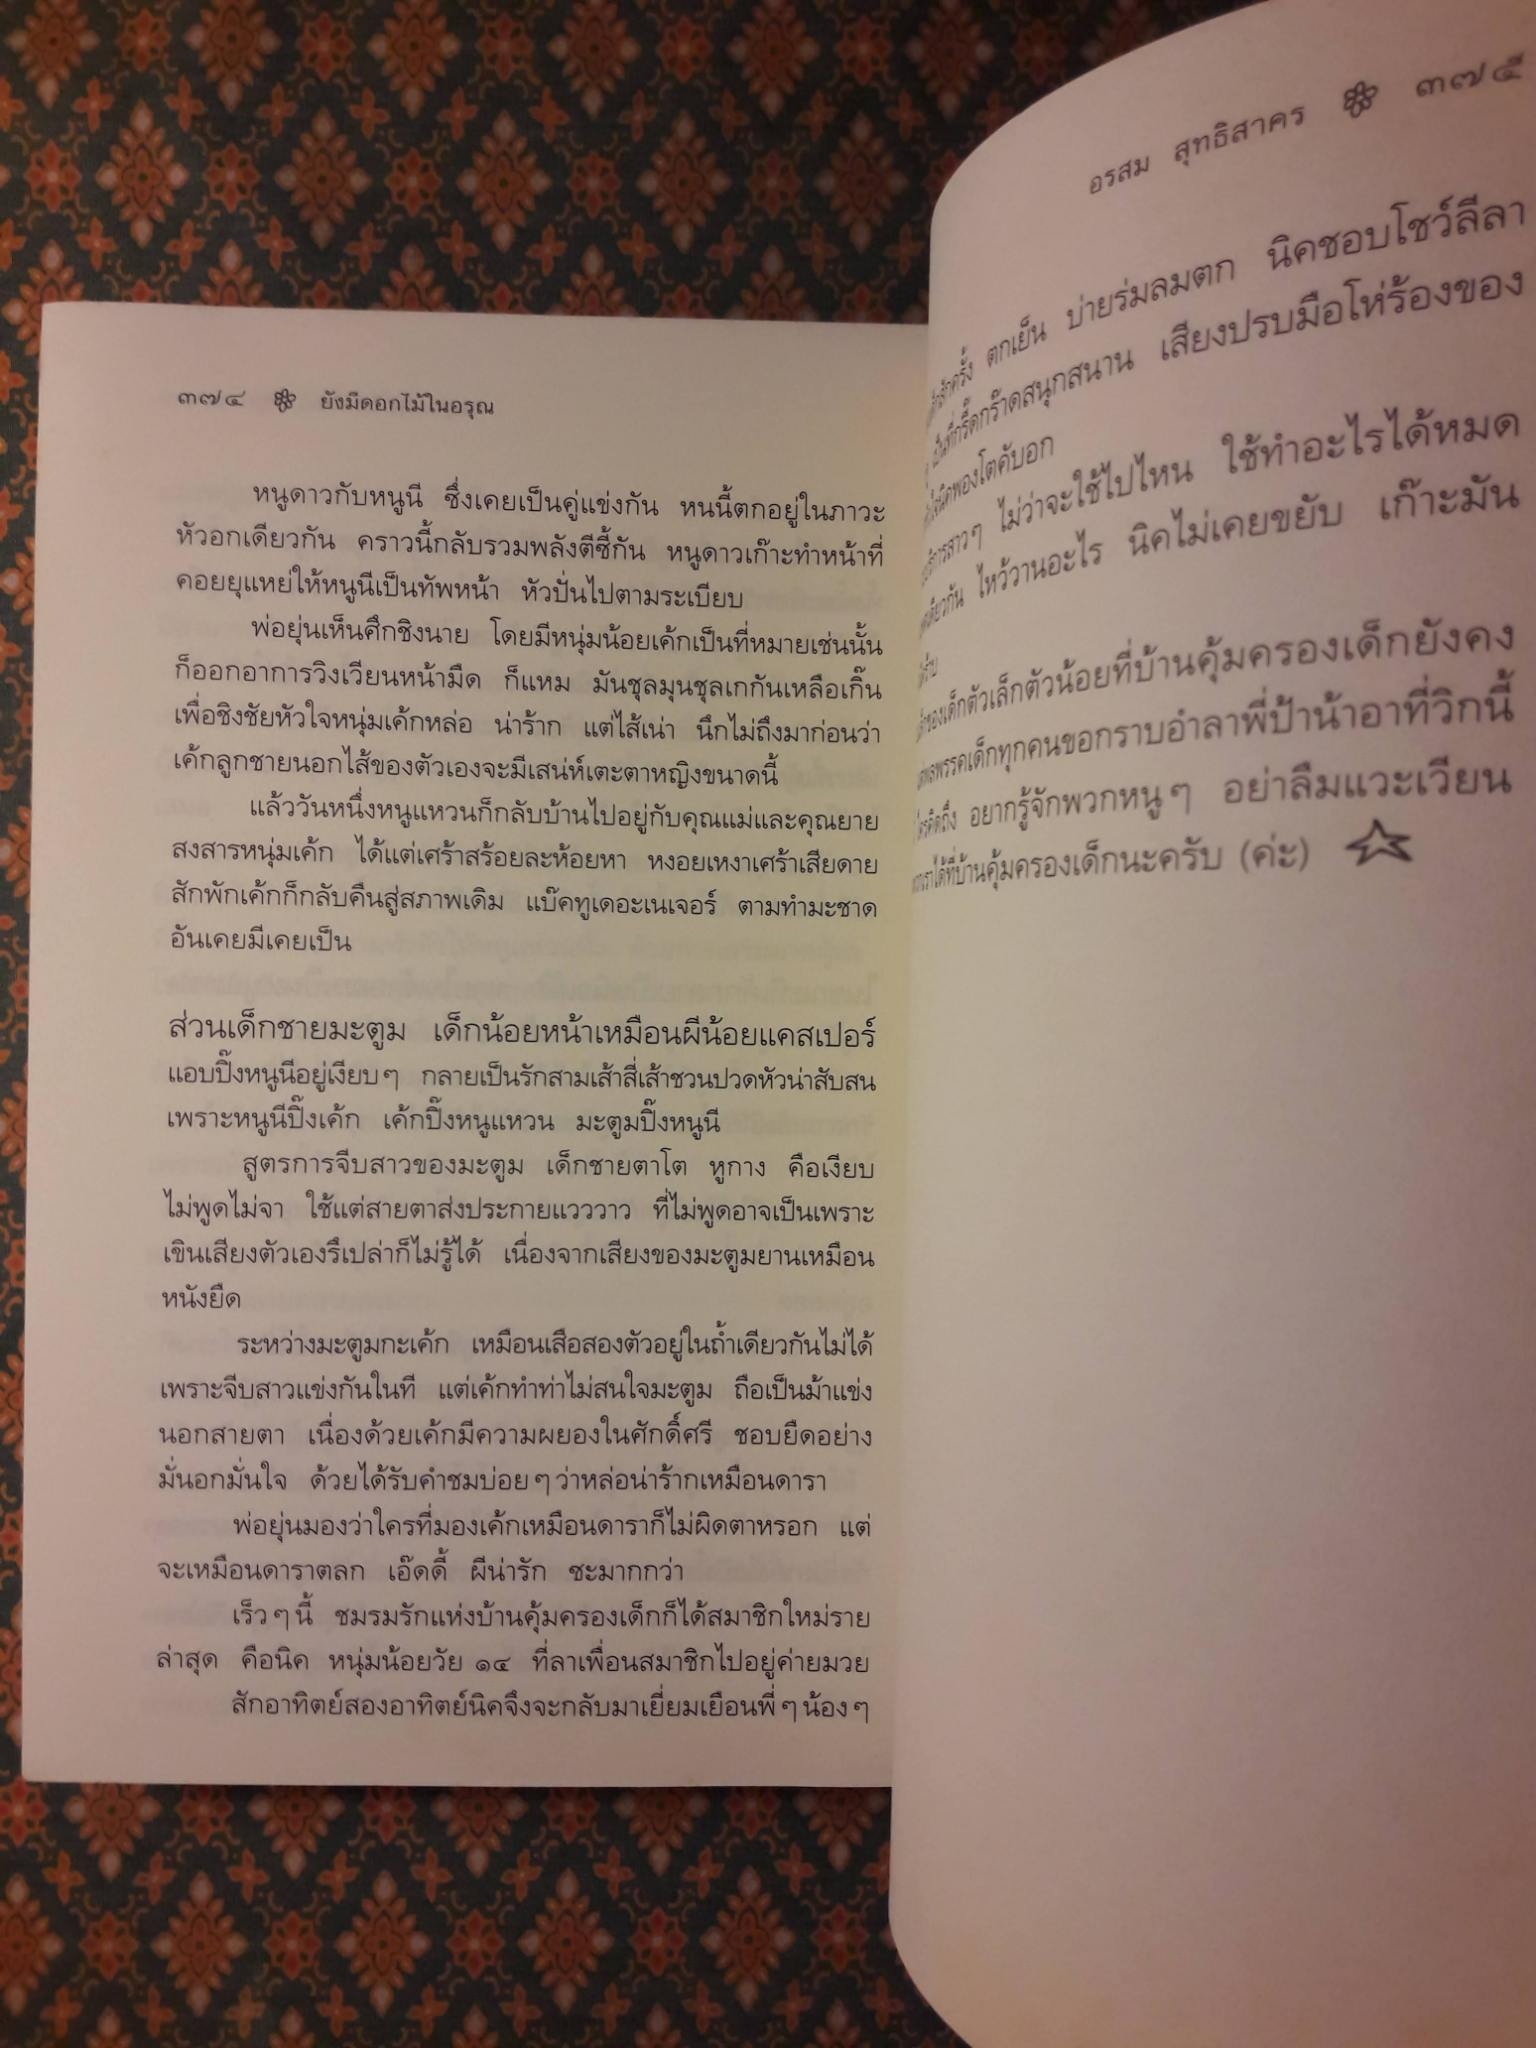 ๓๗๔ ยังมีดอกไม้ในอรุณ
หนูดาวกับหนูนี ซึ่งเคยเป็นคู่แข่งกัน หนนี้ตกอยู่ในภาวะ
หัวอกเดียวกัน คราวนี้กลับรวมพลังตีซี้กัน หนูดาวเก๊าะทำหน้าที่
คอยยุแหย่ให้หนูนีเป็นทัพหน้า หัวปั่นไปตามระเบียบ
พ่อยุ่นเห็นศึกชิงนาย โดยมีหนุ่มน้อยเค้กเป็นที่หมายเช่นนั้น
ก็ออกอาการวิงเวียนหน้ามืด ก็แหม มันชุลมุนชุลเกกันเหลือเกิ๊น
เพื่อชิงชัยหัวใจหนุ่มเค้กหล่อ น่าร้าก แต่ไส้เน่า นึกไม่ถึงมาก่อนว่า
เค้กลูกชายนอกไส้ของตัวเองจะมีเสน่ห์เตะตาหญิงขนาดนี้
แล้ววันหนึ่งหนูแหวนก็กลับบ้านไปอยู่กับคุณแม่และคุณยาย
สงสารหนุ่มเค้ก ได้แต่เศร้าสร้อยละห้อยหา หงอยเหงาเศร้าเสียดาย
สักพักเค้กก็กลับคืนสู่สภาพเดิม แบ๊คทูเดอะเนเจอร์ ตามทำมะชาด
อันเคยมีเคยเป็น
ส่วนเด็กชายมะตูม เด็กน้อยหน้าเหมือนผีน้อยแคสเปอร์
แอบปิ๊งหนูนีอยู่เงียบๆ กลายเป็นรักสามเส้าสี่เส้าชวนปวดหัวน่าสับสน
เพราะหนูนีปิ๊งเค้ก เค้กปิ๊งหนูแหวน มะตูมปิ๊งหนูนี
สูตรการจีบสาวของมะตูม เด็กชายตาโต หูกาง คือเงียบ
ไม่พูดไม่จา ใช้แต่สายตาส่งประกายแวววาว ที่ไม่พูดอาจเป็นเพราะ
เขินเสียงตัวเองรึเปล่าก็ไม่รู้ได้ เนื่องจากเสียงของมะตูมยานเหมือน
หนังยืด
ระหว่างมะตูมกะเค้ก เหมือนเสือสองตัวอยู่ในถ้ำเดียวกันไม่ได้
เพราะจีบสาวแข่งกันในที แต่เค้กทำท่าไม่สนใจมะตูม ถือเป็นม้าแข่ง
นอกสายตา เนื่องด้วยเค้กมีความผยองในศักดิ์ศรี ชอบยืดอย่าง
มั่นอกมั่นใจ ด้วยได้รับคำชมบ่อยๆว่าหล่อน่าร้ากเหมือนดารา
พ่อยุ่นมองว่าใครที่มองเค้กเหมือนดาราก็ไม่ผิดตาหรอก แต่
จะเหมือนดาราตลก เอ๊ดดี้ ผีน่ารัก ซะมากกว่า
เร็วๆนี้ ชมรมรักแห่งบ้านคุ้มครองเด็กก็ได้สมาชิกใหม่ราย
ล่าสุด คือนิค หนุ่มน้อยวัย ๑๔ ที่ลาเพื่อนสมาชิกไปอยู่ค่ายมวย
สักอาทิตย์สองอาทิตย์นิคจึงจะกลับมาเยี่ยมเยือนพี่ๆน้องๆ
อรสม สุทธิสาคร ๓๗๕
สักครั้ง ตกเย็น บ่ายร่มลมตก นิคชอบโชว์ลีลา
เป็นที่กรี๊ดกร๊าดสนุกสนาน เสียงปรบมือโห่ร้องของ
นิคพองโตคับอก
สาวๆ ไม่ว่าจะใช้ไปไหน ใช้ทำอะไรได้หมด
เดียวกัน ไหว้วานอะไร นิคไม่เคยขยับ เก๊าะมัน
ของเด็กตัวเล็กตัวน้อยที่บ้านคุ้มครองเด็กยังคง
พรรคเด็กทุกคนขอกราบอำลาพี่ป้าน้าอาที่วิกนี้
คิดถึง อยากรู้จักพวกหนูๆ อย่าลืมแวะเวียน
เราได้ที่บ้านคุ้มครองเด็กนะครับ (ค่ะ)